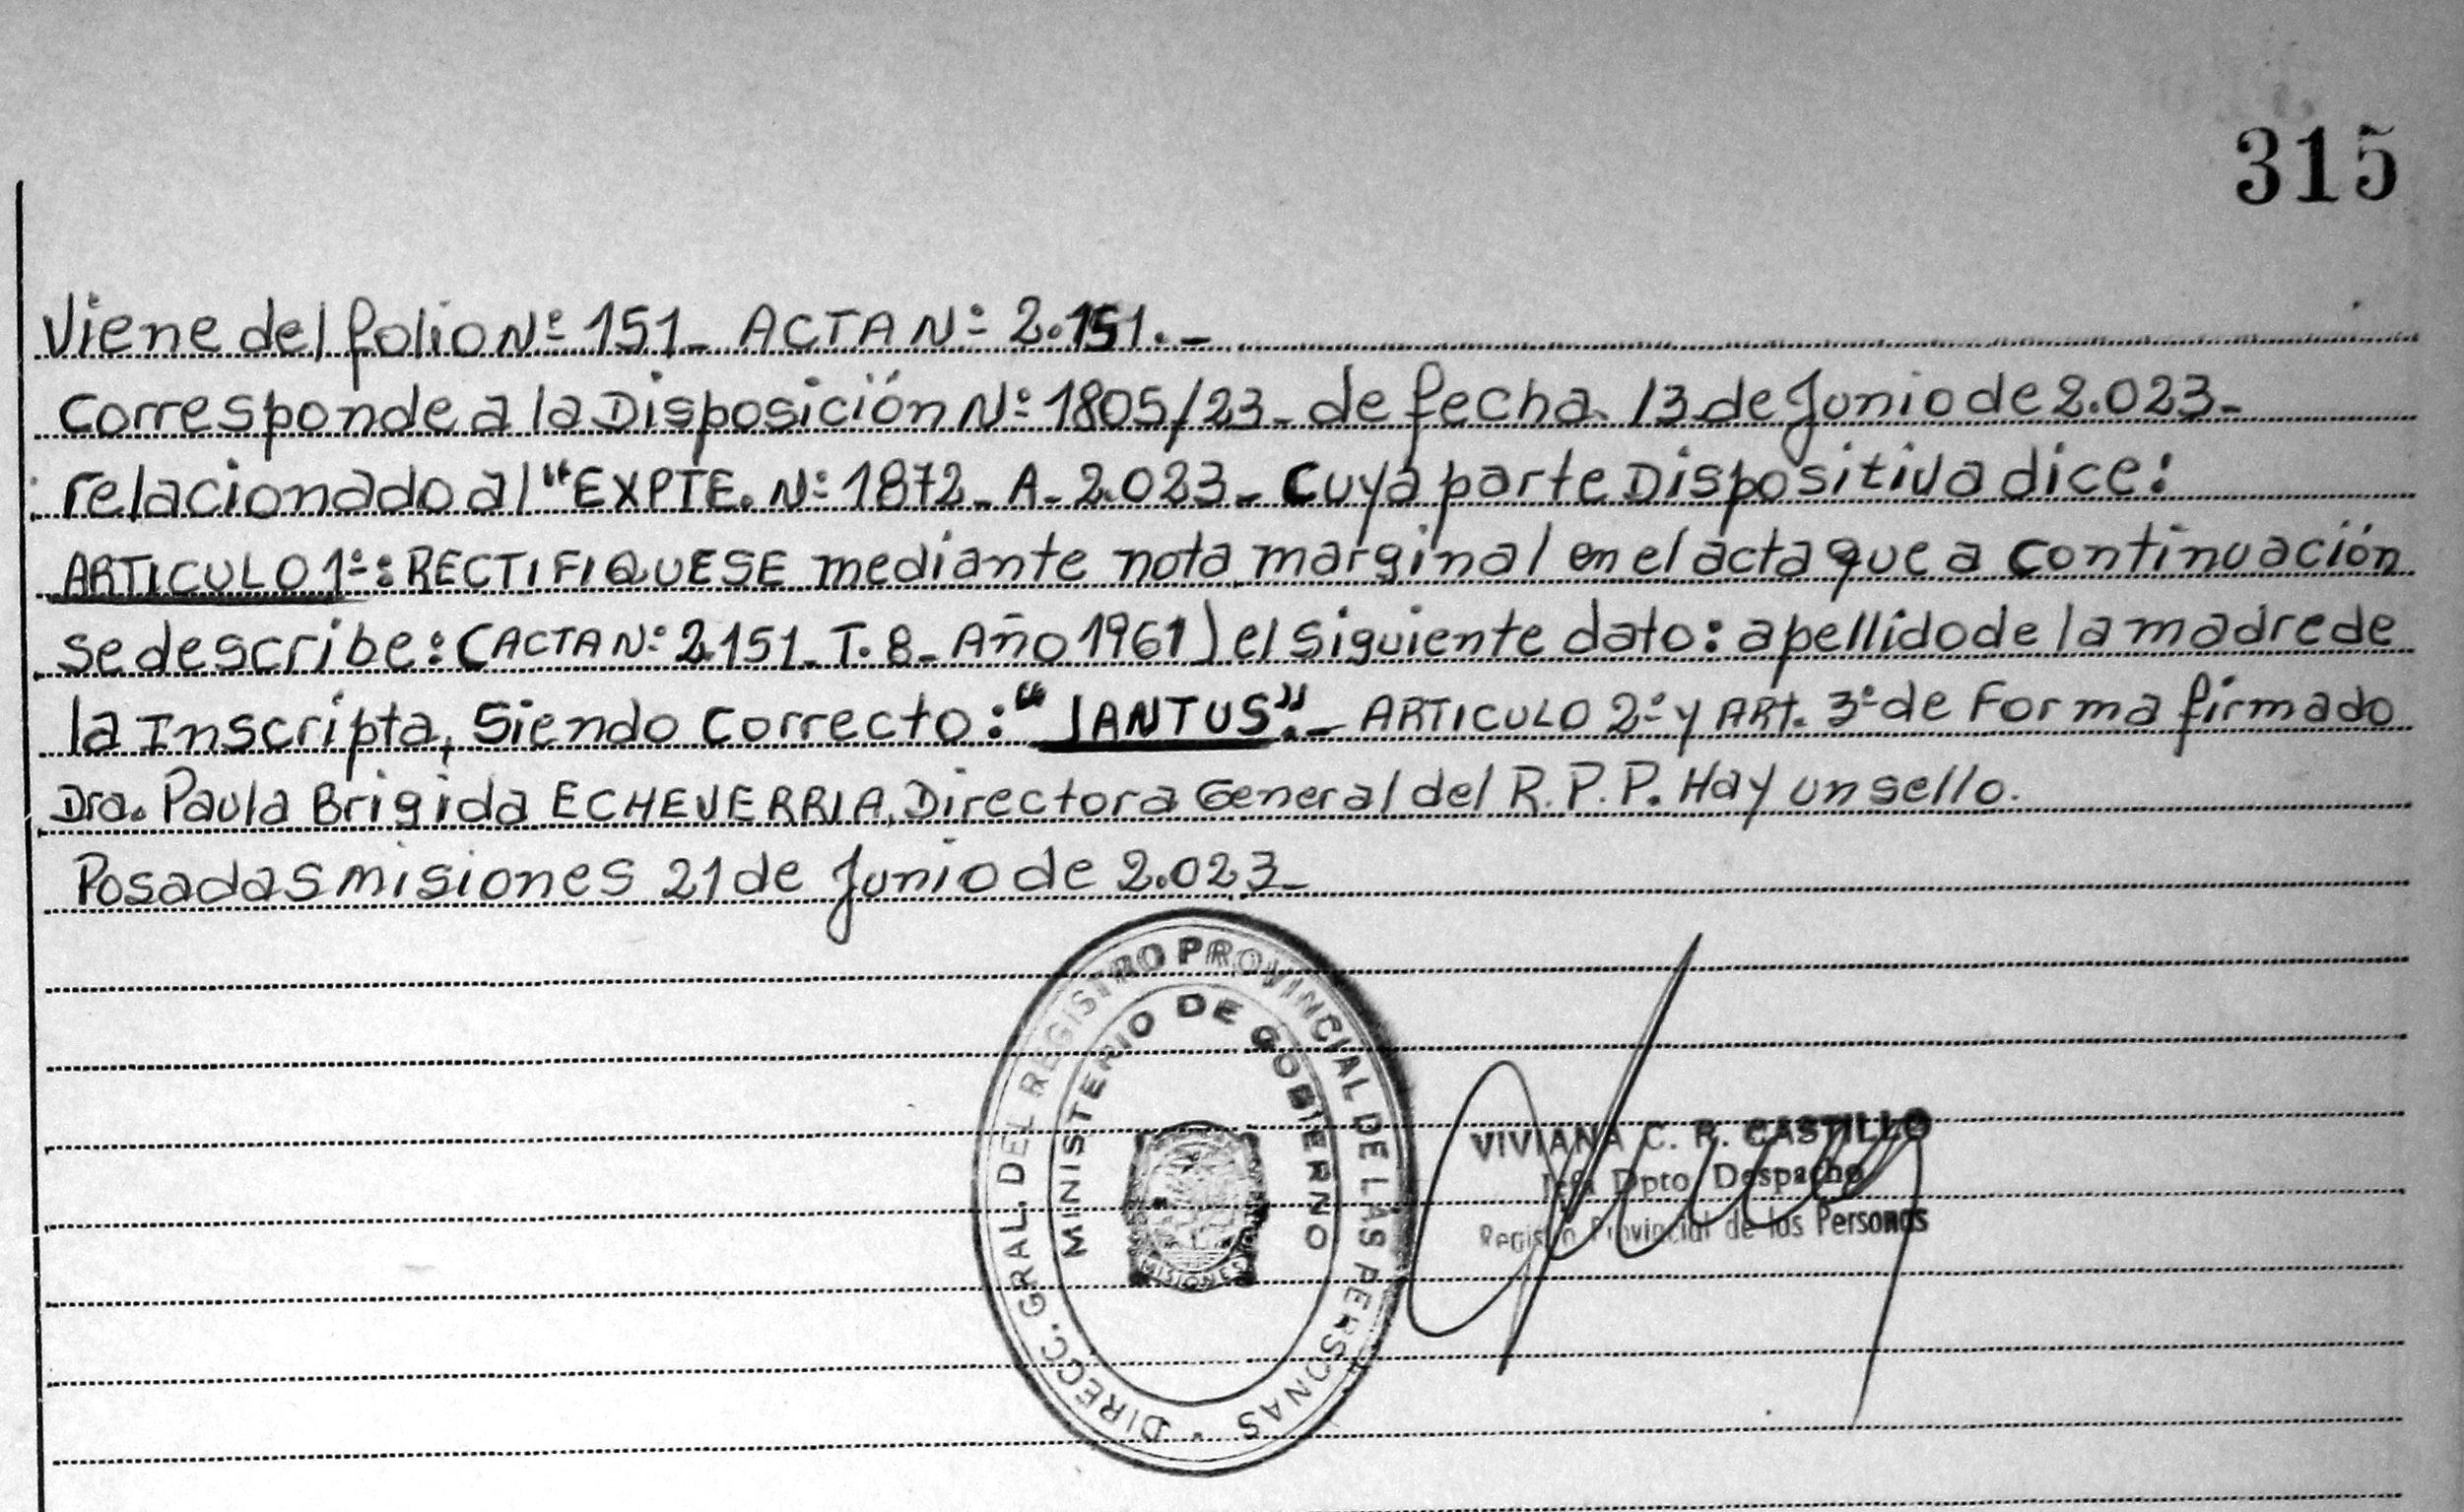 315
Viene del folio Nº 151_ ACTA Nº 2.151._
Corresponde a la Disposición Nº 1805/23_ de fecha 13 de Junio de 2.023_
relacionado al "EXPTE. Nº 1872_ A_ 2.023_ Cuya parte Dispositiva dice:
ARTICULO 1º: RECTIFIQUESE mediante nota marginal en el acta que a continuación
se describe: (ACTA Nº 2.151_ T. 8_ Año 1961) el siguiente dato: apellido de la madre de
la Inscripta, Siendo Correcto: "JANTUS"._ ARTICULO 2º y ART. 3º de Forma firmado
Dra. Paula Brigida ECHEVERRIA, Directora General del R.P.P. Hay un sello.
Posadas misiones 21 de Junio de 2.023_
DIRECC. GRAL. DEL REGISTRO PROVINCIAL DE LAS PERSONAS
MINISTERIO DE GOBIERNO
MISIONES
VIVIANA C. R. CASTILLO
Jefa Dpto Despacho
Registro Provincial de las Personas